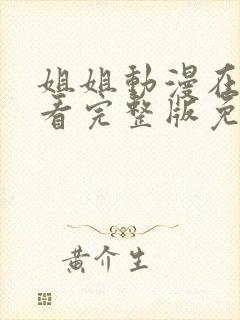 姐姐動漫在
看完整版免
黃介生